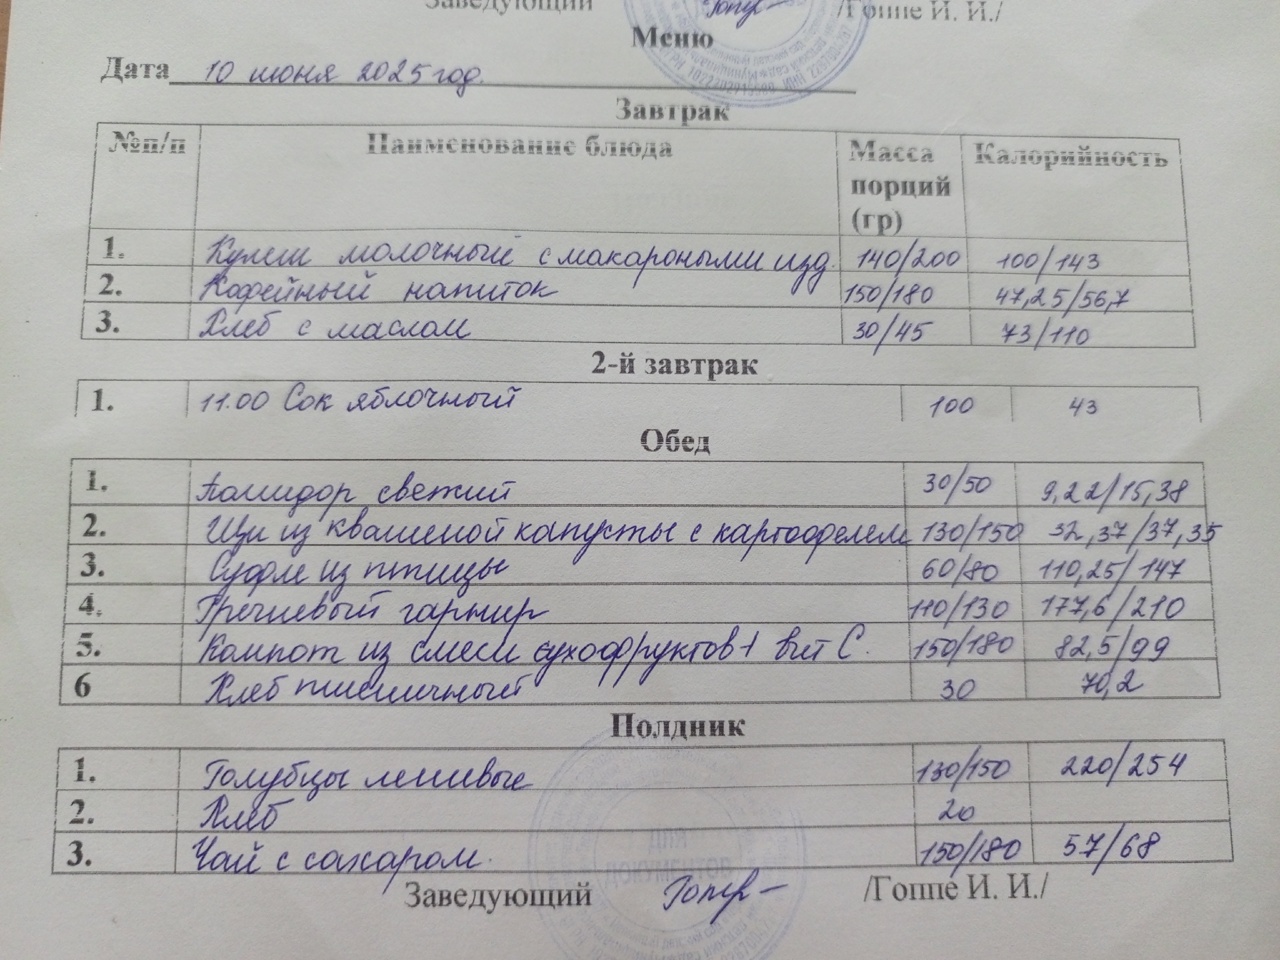 Заведующий /Гоппе И. И./
Меню
Дата 10 июня 2025 год.
Завтрак
№п/п Наименование блюда Масса порций (гр) Калорийность
1. Кулеш молочный с макароными изд. 140/200 100/143
2. Кофейный напиток 150/180 47,25/56,7
3. Хлеб с маслом 30/45 73/110
2-й завтрак
1. 11.00 Сок яблочный 100 43
Обед
1. Помидор свежий 30/50 9,22/15,38
2. Щи из квашеной капусты с картофелем 130/150 32,37/37,35
3. Суфле из птицы 60/80 110,25/147
4. Гречневый гарнир 110/130 177,6/210
5. Компот из смеси сухофруктов + вит С. 150/180 82,5/99
6 Хлеб пшеничный 30 70,2
Полдник
1. Голубцы ленивые 130/150 220/254
2. Хлеб 20
3. Чай с сахаром. 150/180 57/68
ДЛЯ
ДОКУМЕНТОВ
Заведующий /Гоппе И. И./